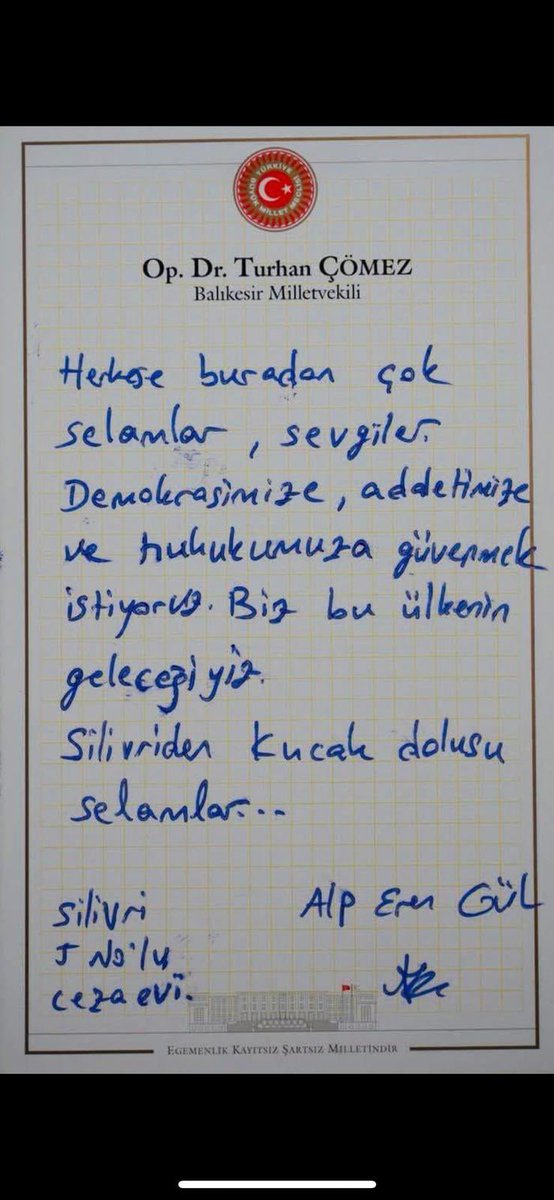 TÜRKİYE BÜYÜK MİLLET MECLİSİ
Op. Dr. Turhan ÇÖMEZ
Balıkesir Milletvekili
Herkese buradan çok
selamlar, sevgiler.
Demokrasimize, addetimize
ve hukukumuza güvenmek
istiyoruz. Biz bu ülkenin
geleceğiyiz.
Silivriden kucak dolusu
selamlar...
Alp Eren GÜL
Silivri
J No'lu
cezaevi.
EGEMENLİK KAYITSIZ ŞARTSIZ MİLLETİNDİR